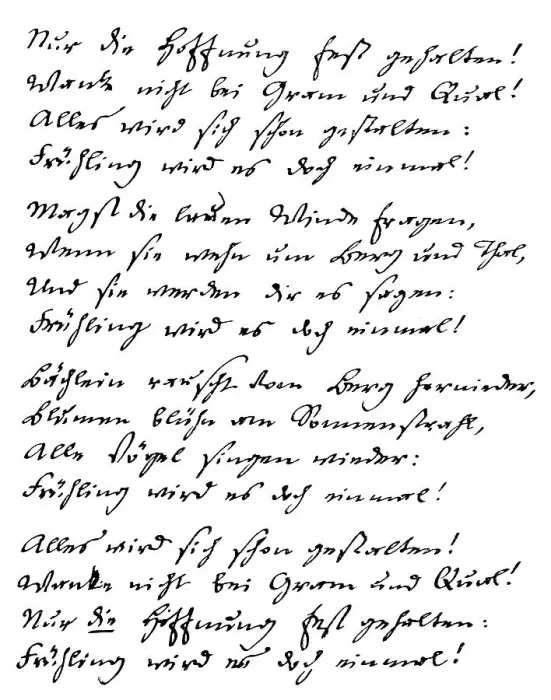 Nur die Hoffnung fest gehalten!
Wanke nicht bei Gram und Qual!
Alles wird sich schon gestalten:
Frühling wird es doch einmal!
Magst die lauen Winde fragen,
Wenn sie wehn um Berg und Thal,
Und sie werden dir es sagen:
Frühling wird es doch einmal!
Bächlein rauscht vom Berg hernieder,
Blumen blühn am Sonnenstrahl,
Alle Vögel singen wieder:
Frühling wird es doch einmal!
Alles wird sich schon gestalten!
Wanke nicht bei Gram und Qual!
Nur die Hoffnung fest gehalten:
Frühling wird es doch einmal!